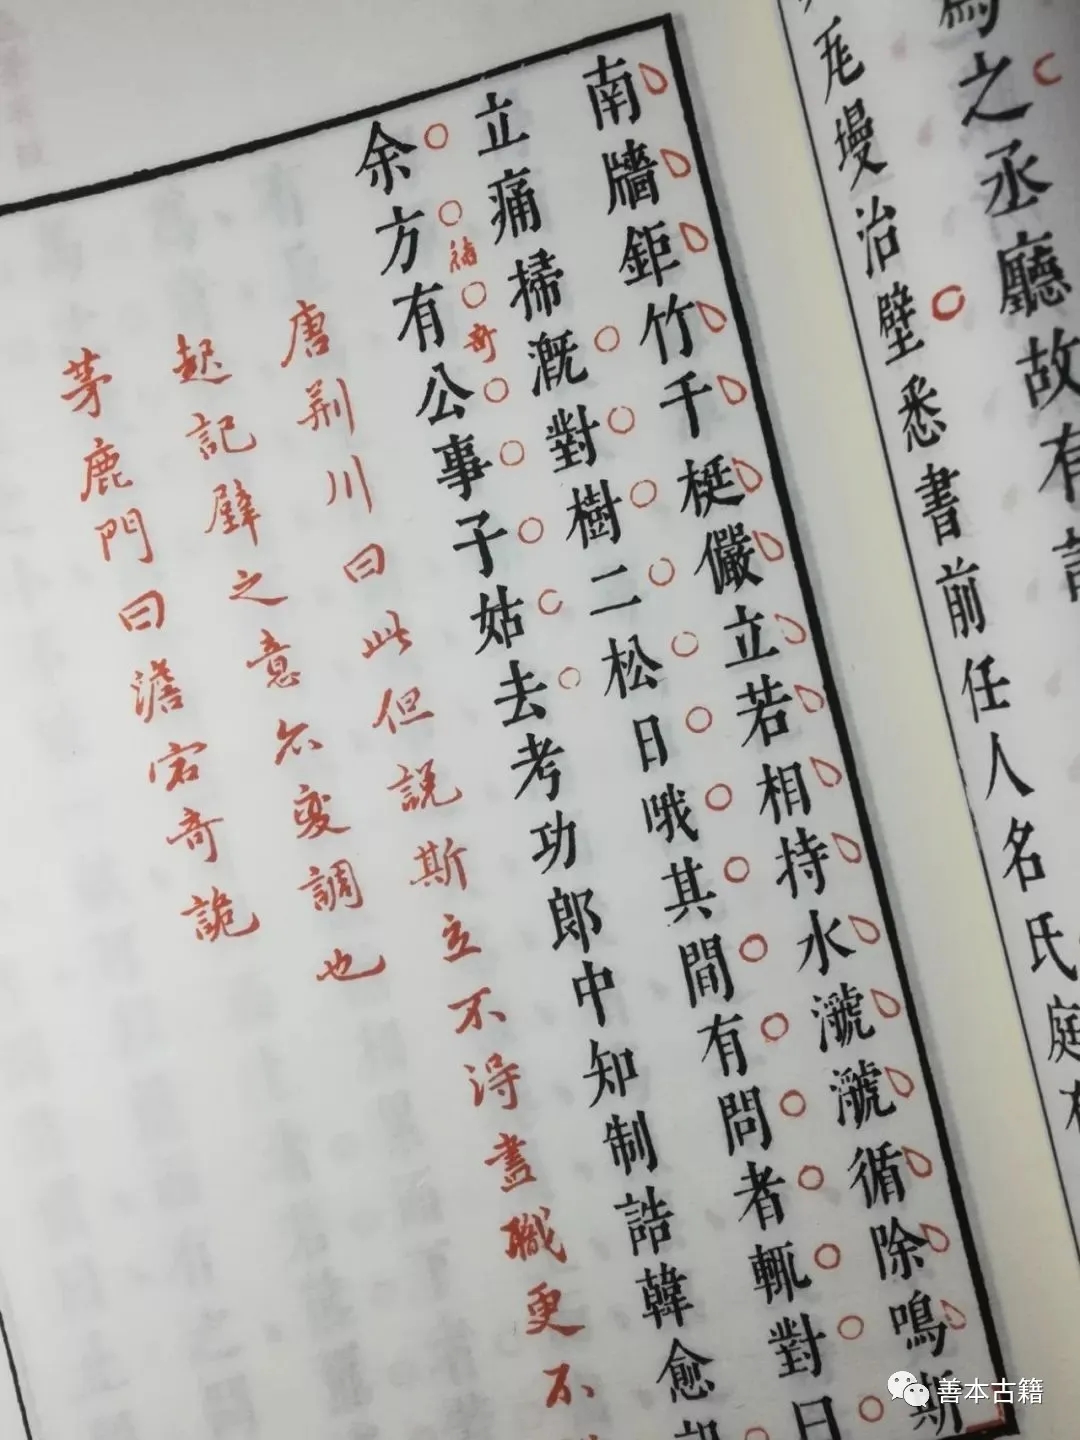 為之丞廳故有
墁治壁悉書前任人名氏庭
南牆鉅竹千梃儼立若相持水㶁㶁循除鳴斯
立痛掃溉對樹二松日哦其間有問者輒對曰
余方有公事子姑去考功郎中知制誥韓愈
奇
唐荊川曰此但說斯立不得盡職更不
起記壁之意亦變調也
茅鹿門曰澹宕奇詭
善本古籍